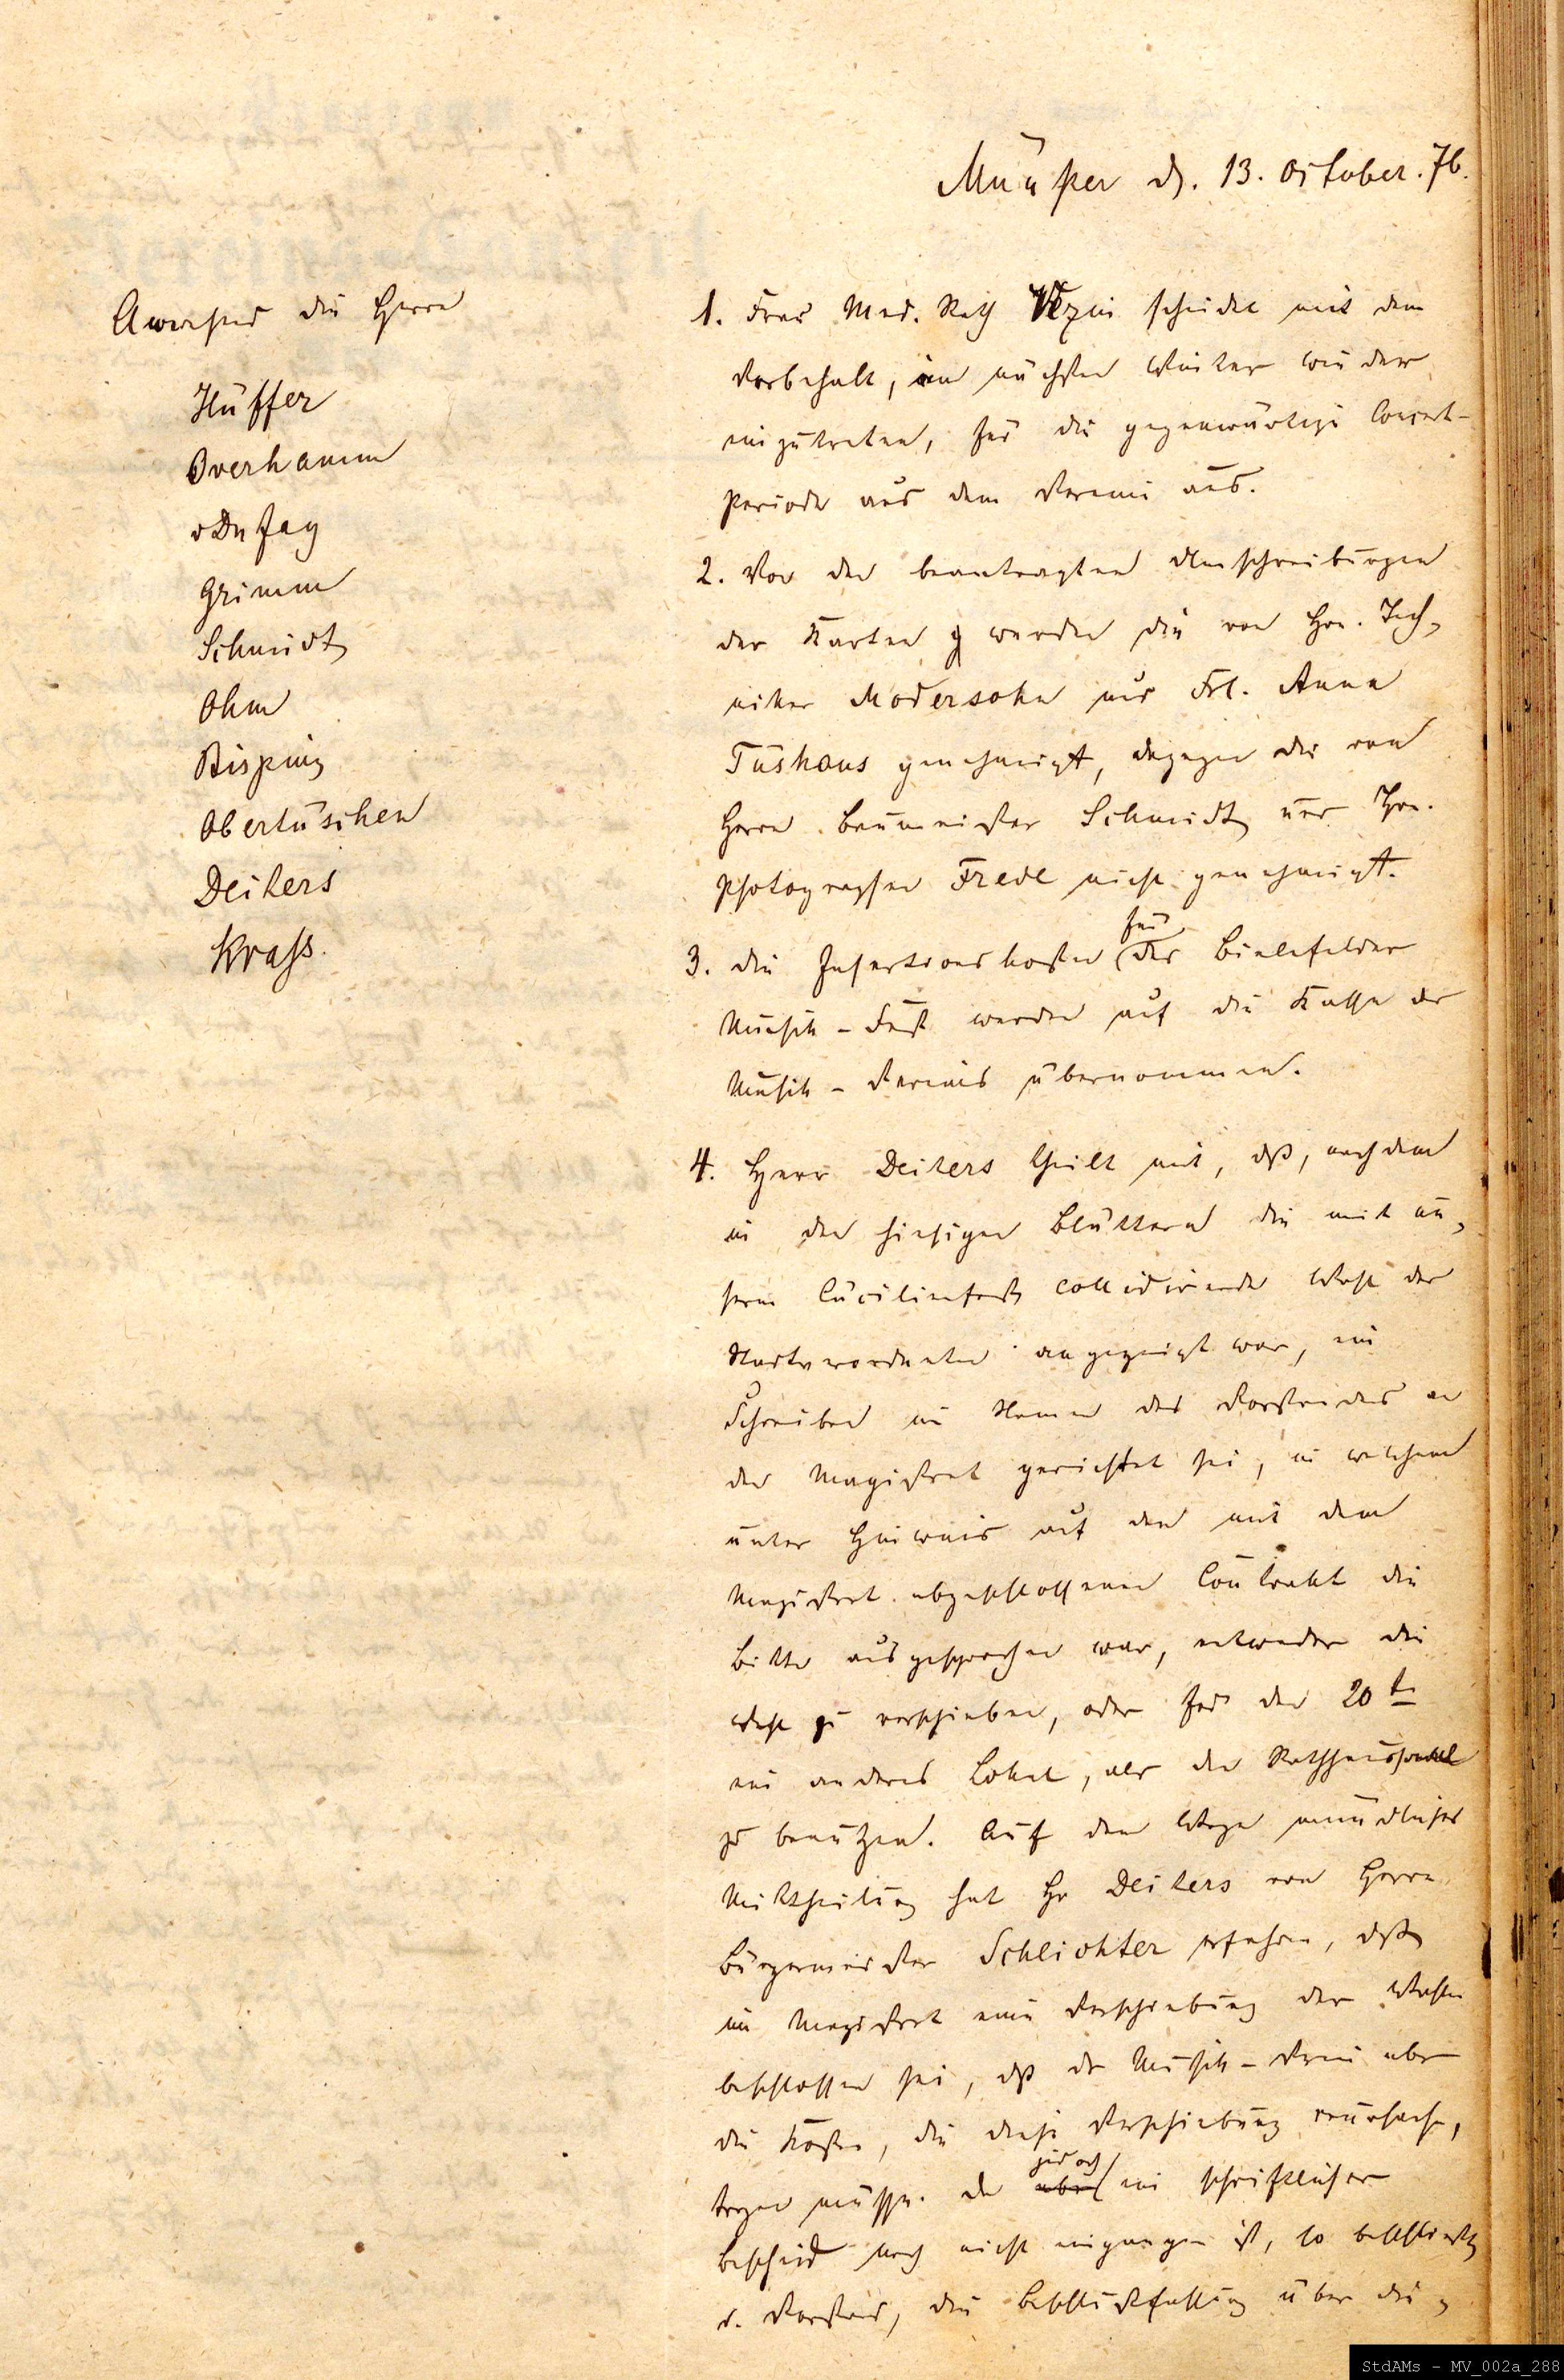 Münster d. 13. October. 76.
Anwesend die Herrn
Hüffer
Overhamm
v Du Jay
Grimm
Schmidt
Ohm
Bisping
Obertüschen
Deiters
Krass.
1. Frau Med. Rath Vezin scheidet mit dem
Vorbehalt, im nächsten Winter wieder
einzutreten, für die gegenwärtige Concert-
periode aus dem Verein aus.
2. Von den beantragten Umschreibungen
der Karten werden die von Hrn. Tech-
niker Modersohn und Frl. Anna
Tüshaus genehmigt, dagegen die von
Herrn Baumeister Schmidt und Hrn.
Photographen Frede nicht genehmigt.
3. Die Insertionskosten für das Bielefelder
Musik-Fest werden auf die Kasse des
Musik-Vereins übernommen.
4. Herr Deiters theilt mit, daß, nachdem
in den hiesigen Blättern die mit un-
serm Cäcilienfest collidirende Wahl der
Stadtverordneten angezeigt war, ein
Schreiben im Namen des Vorstandes an
den Magistrat gerichtet sei, in welchem
unter Hinweis auf den mit dem
Magistrat abgeschlossenen Contrakt die
Bitte ausgesprochen war, entweder die
Wahl zu verschieben, oder für den 20t.
ein anderes Lokal, als den Rathhaussaal
zu benutzen. Auf dem Wege mündlicher
Mittheilung hat Hr Deiters von Herrn
Bürgermeister Schlichter erfahren, daß
im Magistrat eine Verschiebung der Wahlen
beschlossen sei, daß der Musik-Verein aber
die Kosten, die diese Verschiebung verursache,
tragen müsse. Da aber jedoch ein schriftlicher
Bescheid noch nicht eingegangen ist, so beschließt
d. Vorstand, die Beschlußfassung über die
StdAMs - MV_002a_288